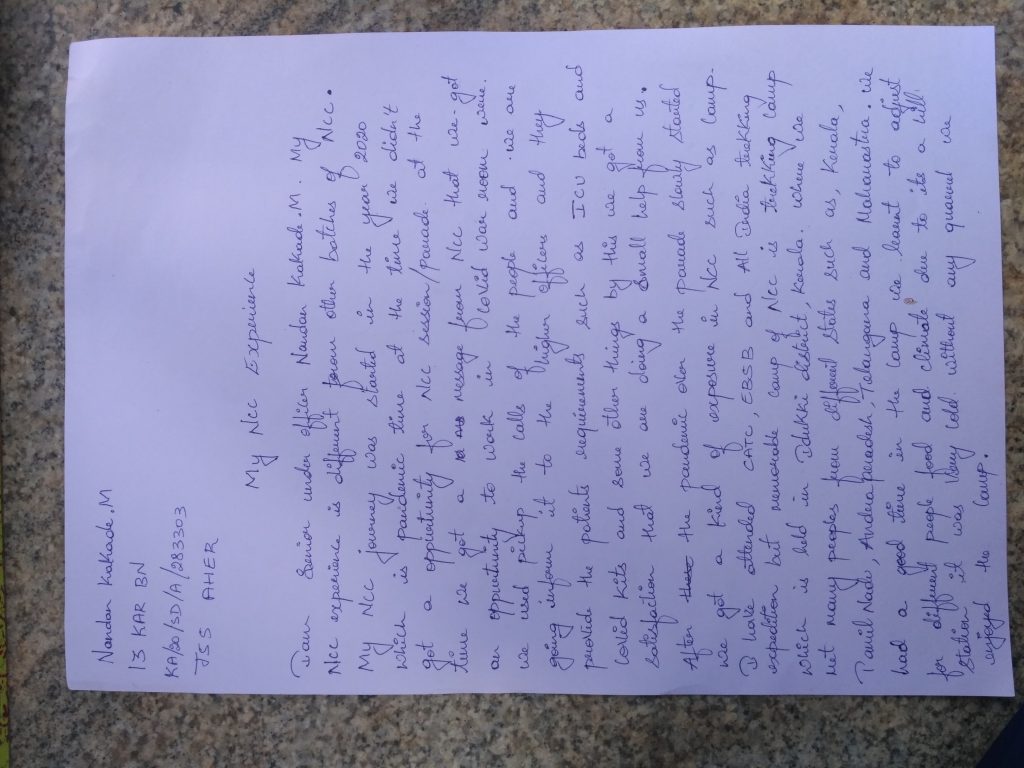 Nandan Kakade.M
13 KAR BN
KA/20/SD/A/283303
JSS AHER
My Ncc Experience
I am Senior under officer Nandan Kakade.M. My
Ncc experience is different from other batches of Ncc.
My Ncc journey was started in the year 2020
which is pandemic time at the time we didn't
got a opportunity for Ncc session/parade. at the
time we got a message from Ncc that we got
an opportunity to work in covid war room were
we used pickup the calls of the people and we are
going inform it to the higher officers and they
provid the patients requirements such as ICU beds and
covid kits and some other things by this we got a
satisfaction that we are doing a small help from us.
After the pandemic over the parade slowly started
we got a kind of exposure in Ncc such as camp.
I have attended CATC, EBSB and All India trekking
expedition but memorable camp of Ncc is trekking camp
which is held in Idukki district, Kerala. where we
met many peoples from different state such as, Kerala,
Tamil Nadu, Andra pradesh, Telangana and Maharastra. we
had a good time in the camp we learnt to adjust
for different people food and climate due to its a hill
station it was very cold. without any quarrel we
enjoyed the camp.